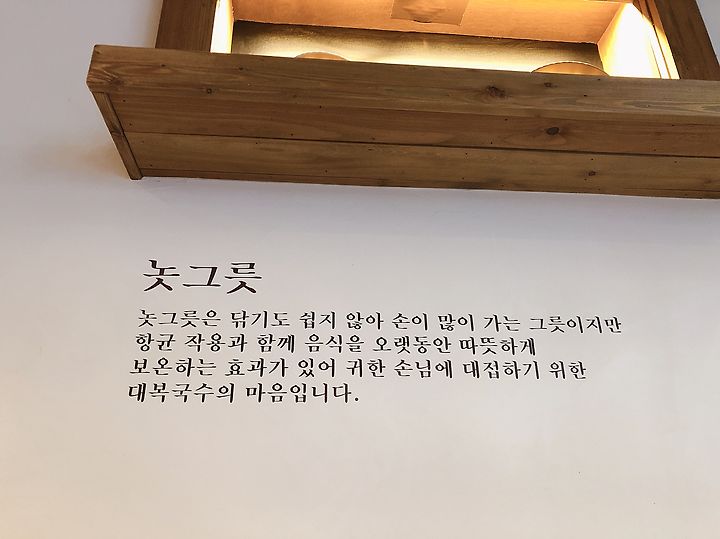 놋그릇
놋그릇은 닦기도 쉽지 않아 손이 많이 가는 그릇이지만
항균 작용과 함께 음식을 오랫동안 따뜻하게
보온하는 효과가 있어 귀한 손님에 대접하기 위한
대복국수의 마음입니다.